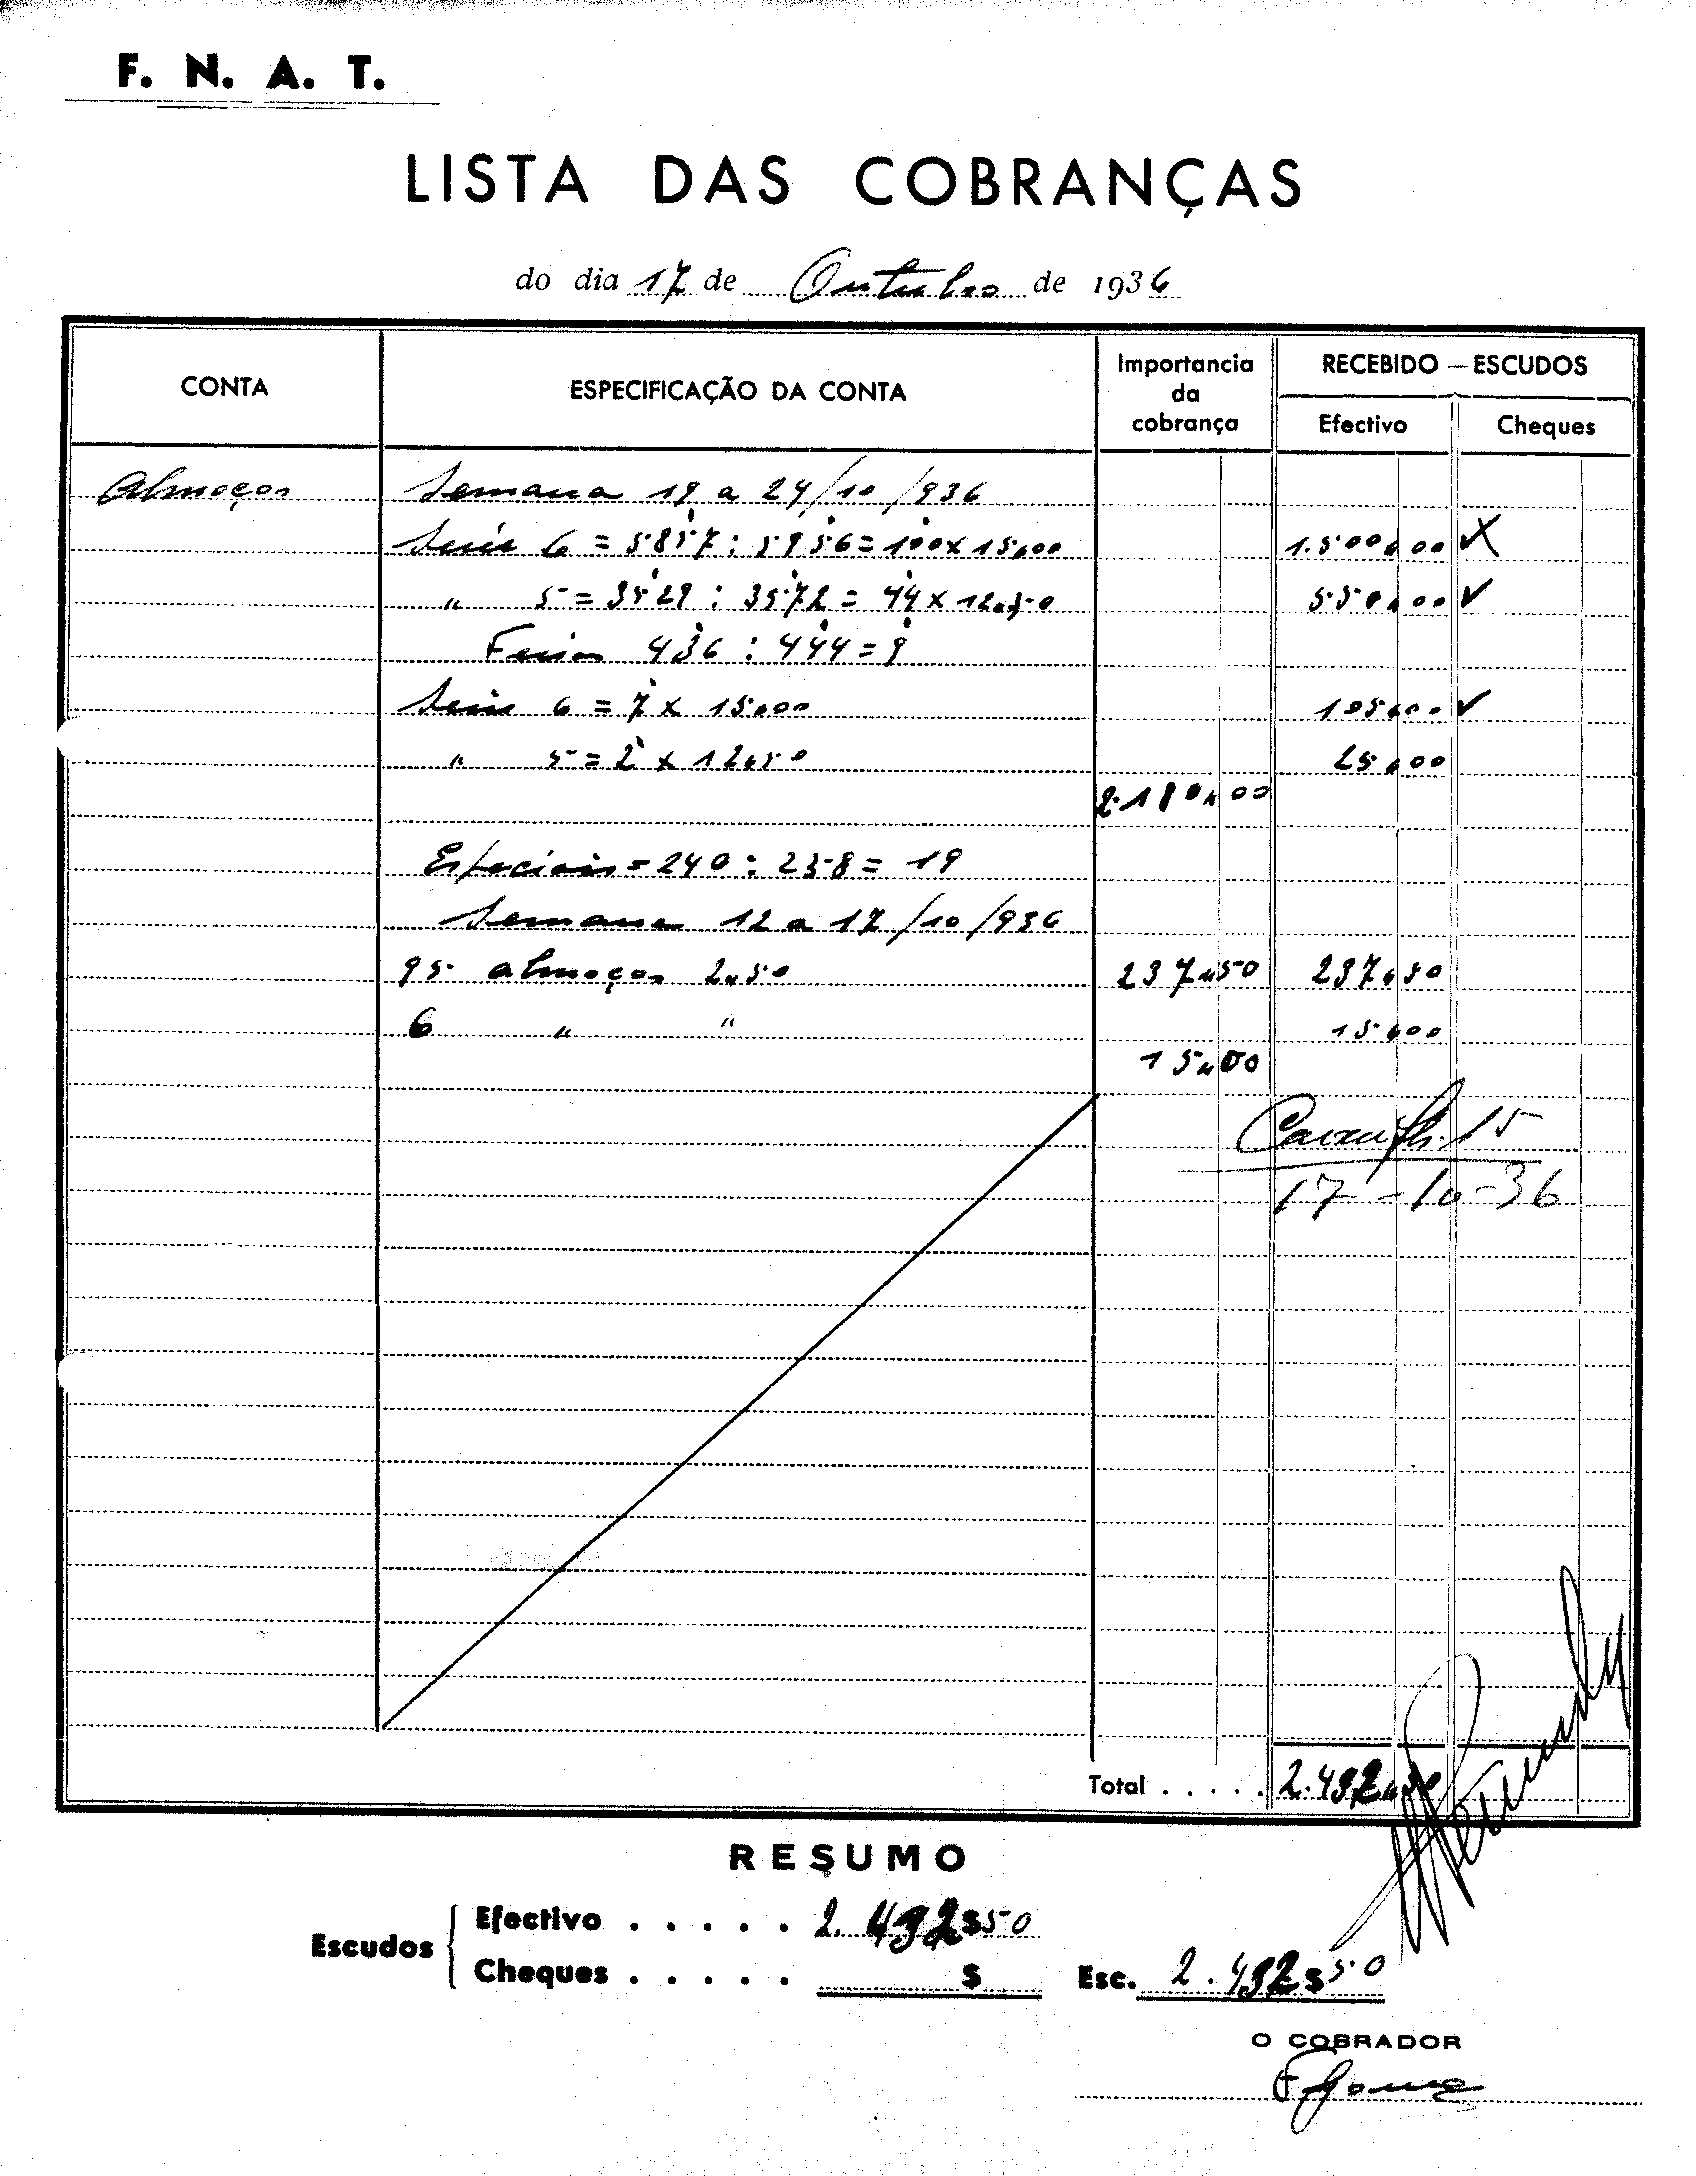 F. N. A. T.
LISTA DAS COBRANÇAS
do dia 17 de Outubro de 1936
CONTA
ESPECIFICAÇÃO DA CONTA
Importancia da cobrança
RECEBIDO — ESCUDOS
Efectivo
Cheques
Almoços Semana 19 a 24/10/936
Série 6 = 5857 : 5956 = 100 x 15$00 1.500$00
" 5 = 3529 : 3572 = 44 x 12$50 550$00
436 : 444 = 9
Série 6 = 7 x 15$00 105$00
" 5 = 2 x 12$50 25$00
2.180$00
Especiais = 240 : 258 = 19
Semana 12 a 17/10/936
95 almoços 2$50 237$50 237$50
6 " " 15$00
15$00
15
17-10-36
Total . . . . . 2.432$50
RESUMO
Escudos
Efectivo . . . . . 2.432$50
Cheques . . . . . $
Esc. 2.432$50
O COBRADOR